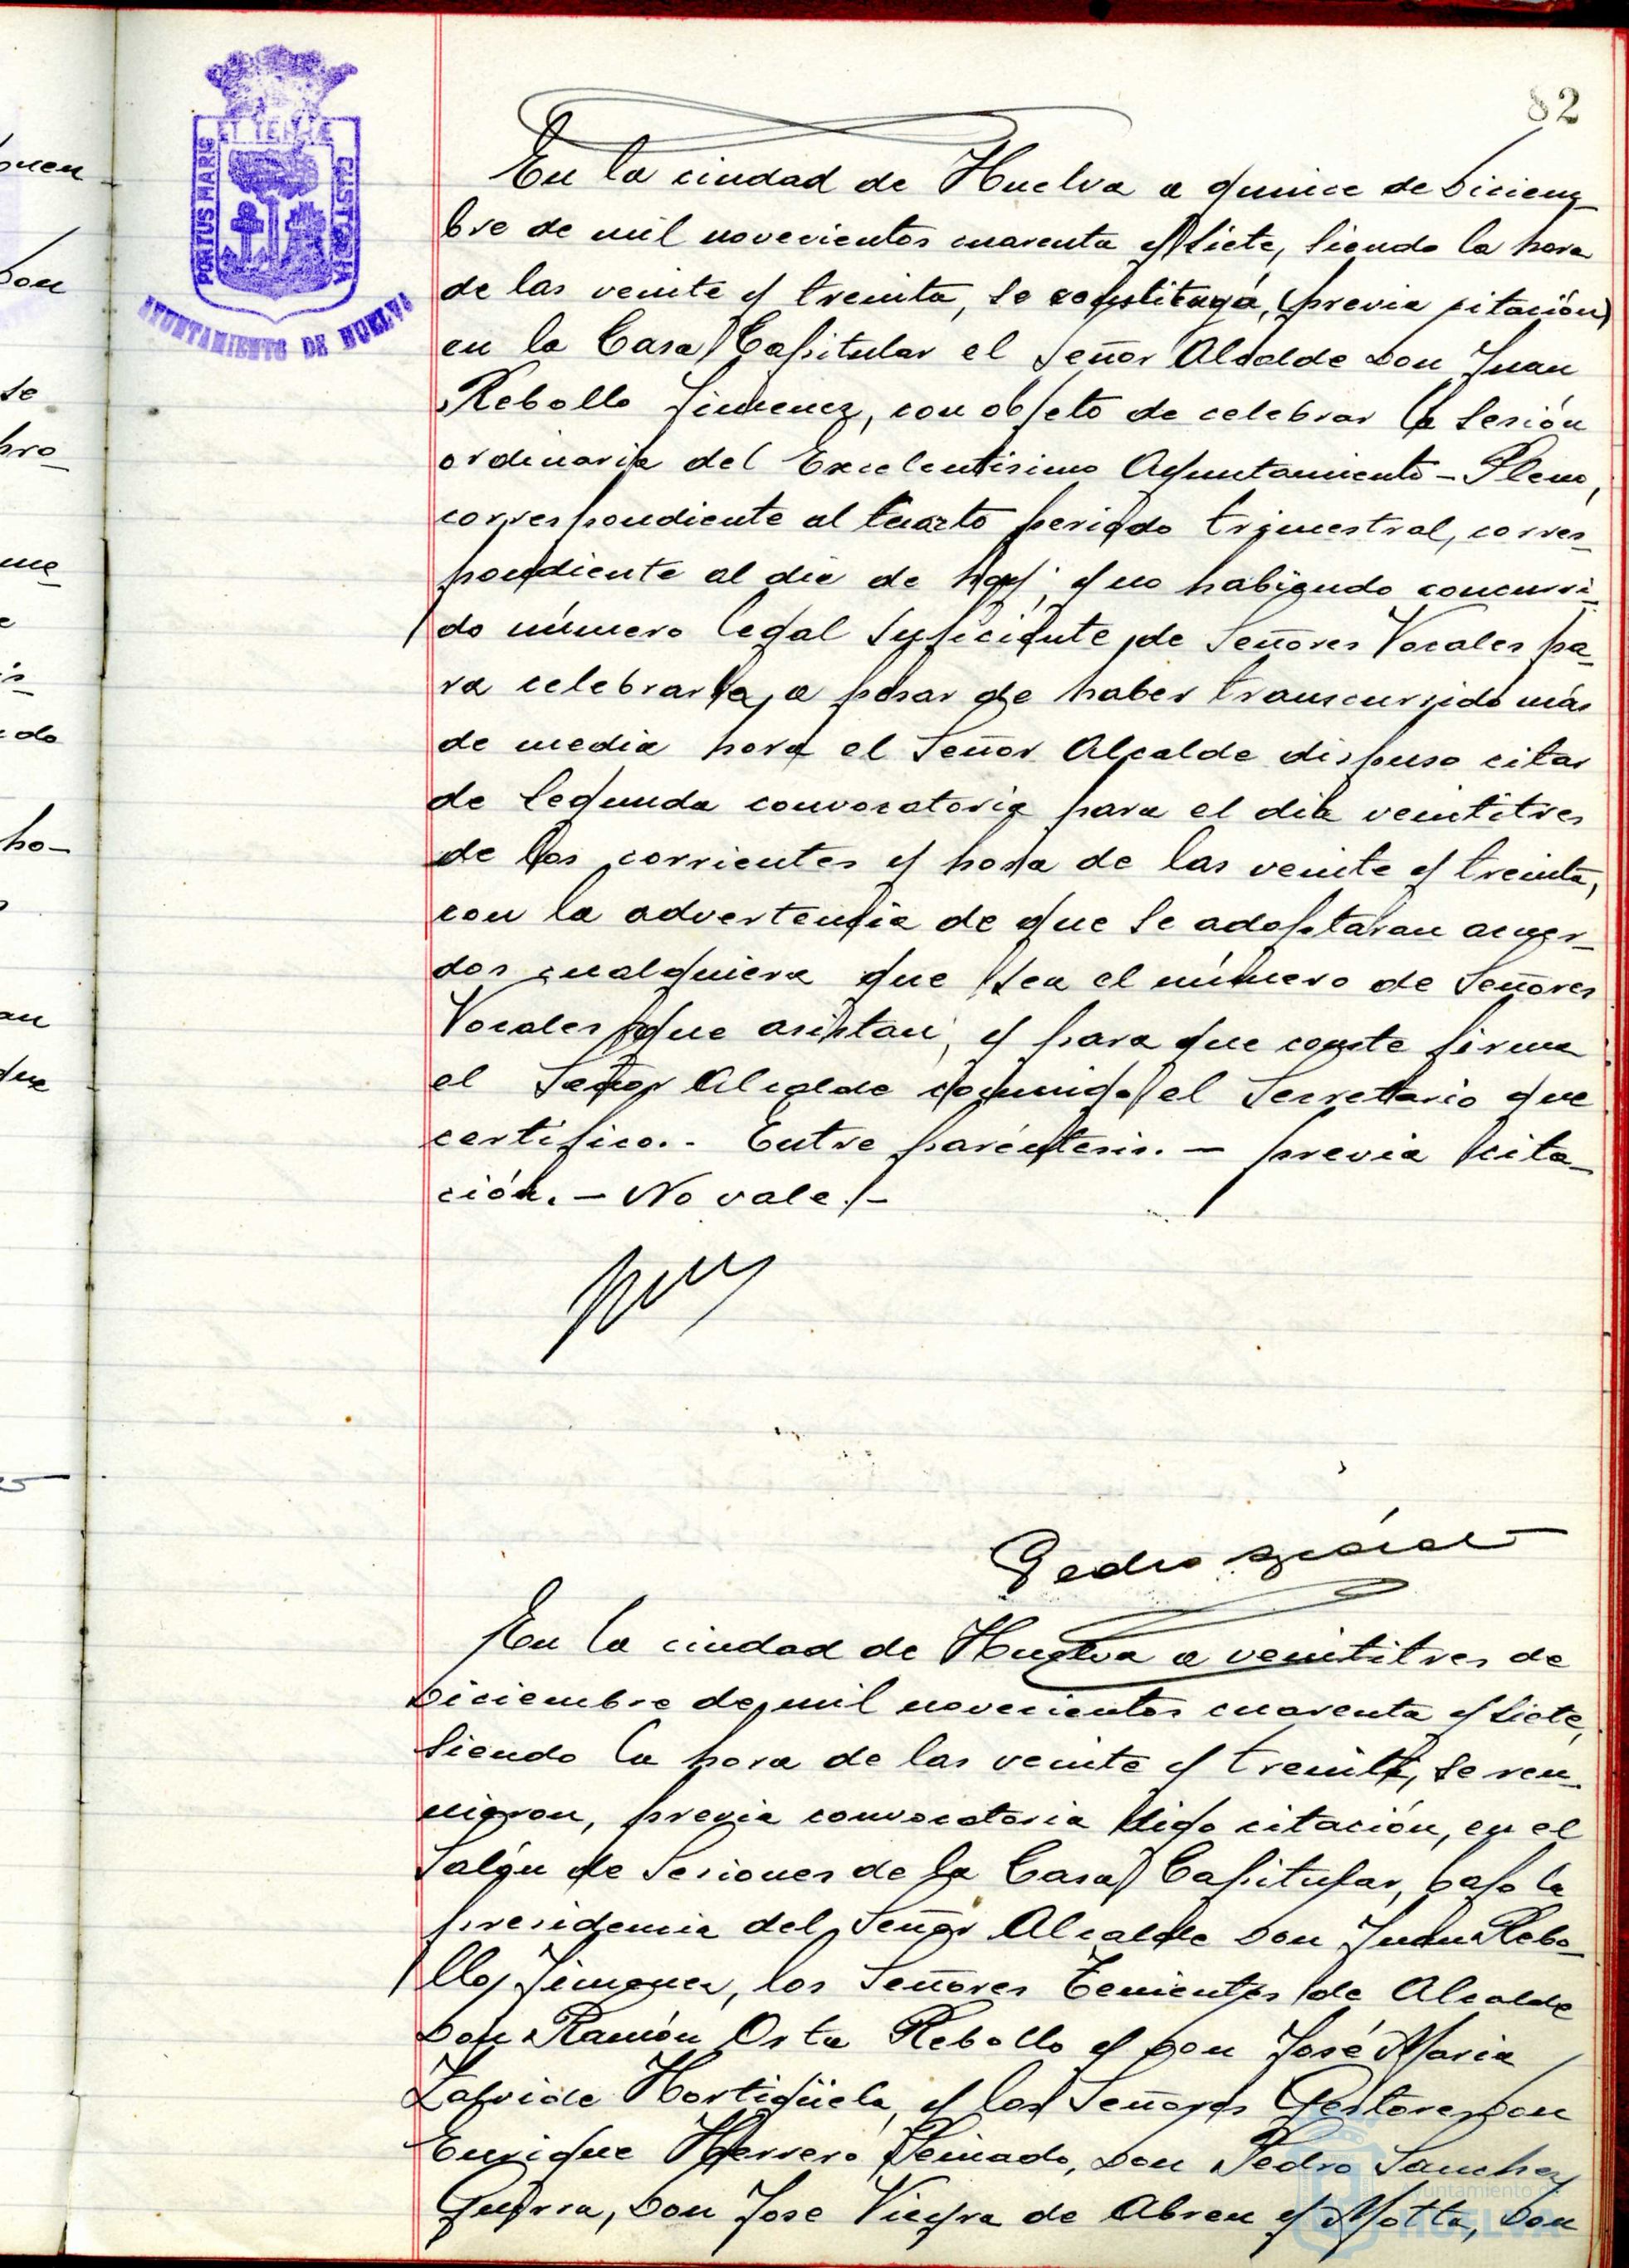 82
ET TERRE
PORTUS MARIS
CUSTODIA
AYUNTAMIENTO DE HUELVA
En la ciudad de Huelva a quince de Diciem-
bre de mil novecientos cuarenta y siete, siendo la hora
de las veinte y treinta, se constituyó, (previa citación)
en la Casa Capitular el Señor Alcalde Don Juan
Rebollo Jimenez, con objeto de celebrar la sesión
ordinaria del Excelentisimo Ayuntamiento - Pleno,
correspondiente al cuarto periodo trimestral, corres-
pondiente al dia de hoy; y no habiendo concurri-
do número legal suficiente de Señores Vocales pa-
ra celebrarla, a pesar de haber transcurrido más
de media hora el Señor Alcalde dispuso citar
de segunda convocatoria para el dia veintitres
de los corrientes y hora de las veinte y treinta,
con la advertencia de que se adoptaran acuer-
dos cualquiera que sea el número de Señores
Vocales que asistan; y para que conste firma
el Señor Alcalde conmigo el Secretario que
certifico.- Entre paréntesis. - previa cita-
ción. - No vale. -
Pedro
En la ciudad de Huelva a veintitres de
Diciembre de mil novecientos cuarenta y siete,
siendo la hora de las veinte y treinta, se reu-
nieron, previa convocatoria digo citación, en el
Salón de Sesiones de la Casa Capitular, bajo la
presidencia del Señor Alcalde Don Juan Rebo-
llo Jimenez, los Señores Tenientes de Alcalde
Don Ramón Orta Rebollo y Don José Maria
Zafvide Hortigüela, y los Señores Gestores Don
Enrique Herrero Peinado, Don Pedro Sanchez
Guerra, Don Jose Vieyra de Abreu y Motta, Don
Ayuntamiento de
HUELVA